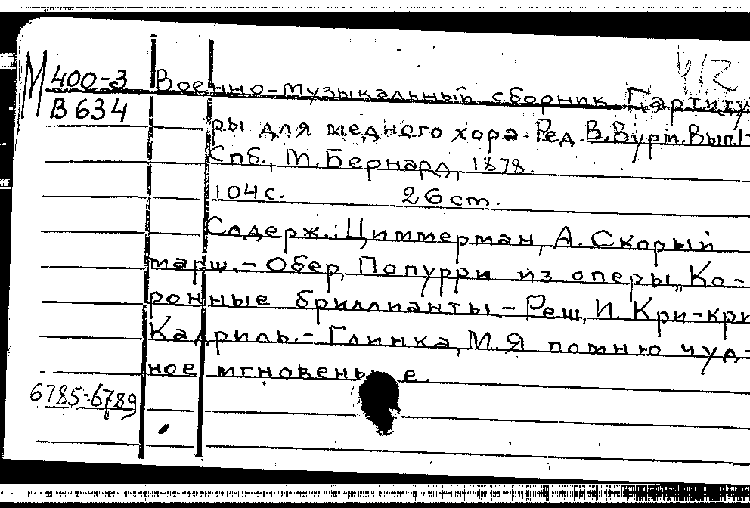 М 400-3 Военно-музыкальный сборник Партиту
В 634
ры для медного хора. Ред. В.Вурм. Вып.1
Спб., М. Бернард, 1878.
104 с. 26 cm.
Содерж.: Циммерман, А. Скорый
марш. – Обер, Попурри из оперы „Ко-
ронные бриллианты – Реш, И. Кри-кри
Кадриль. – Глинка, М. Я помню чуд-
ное мгновенье.
6785-6789